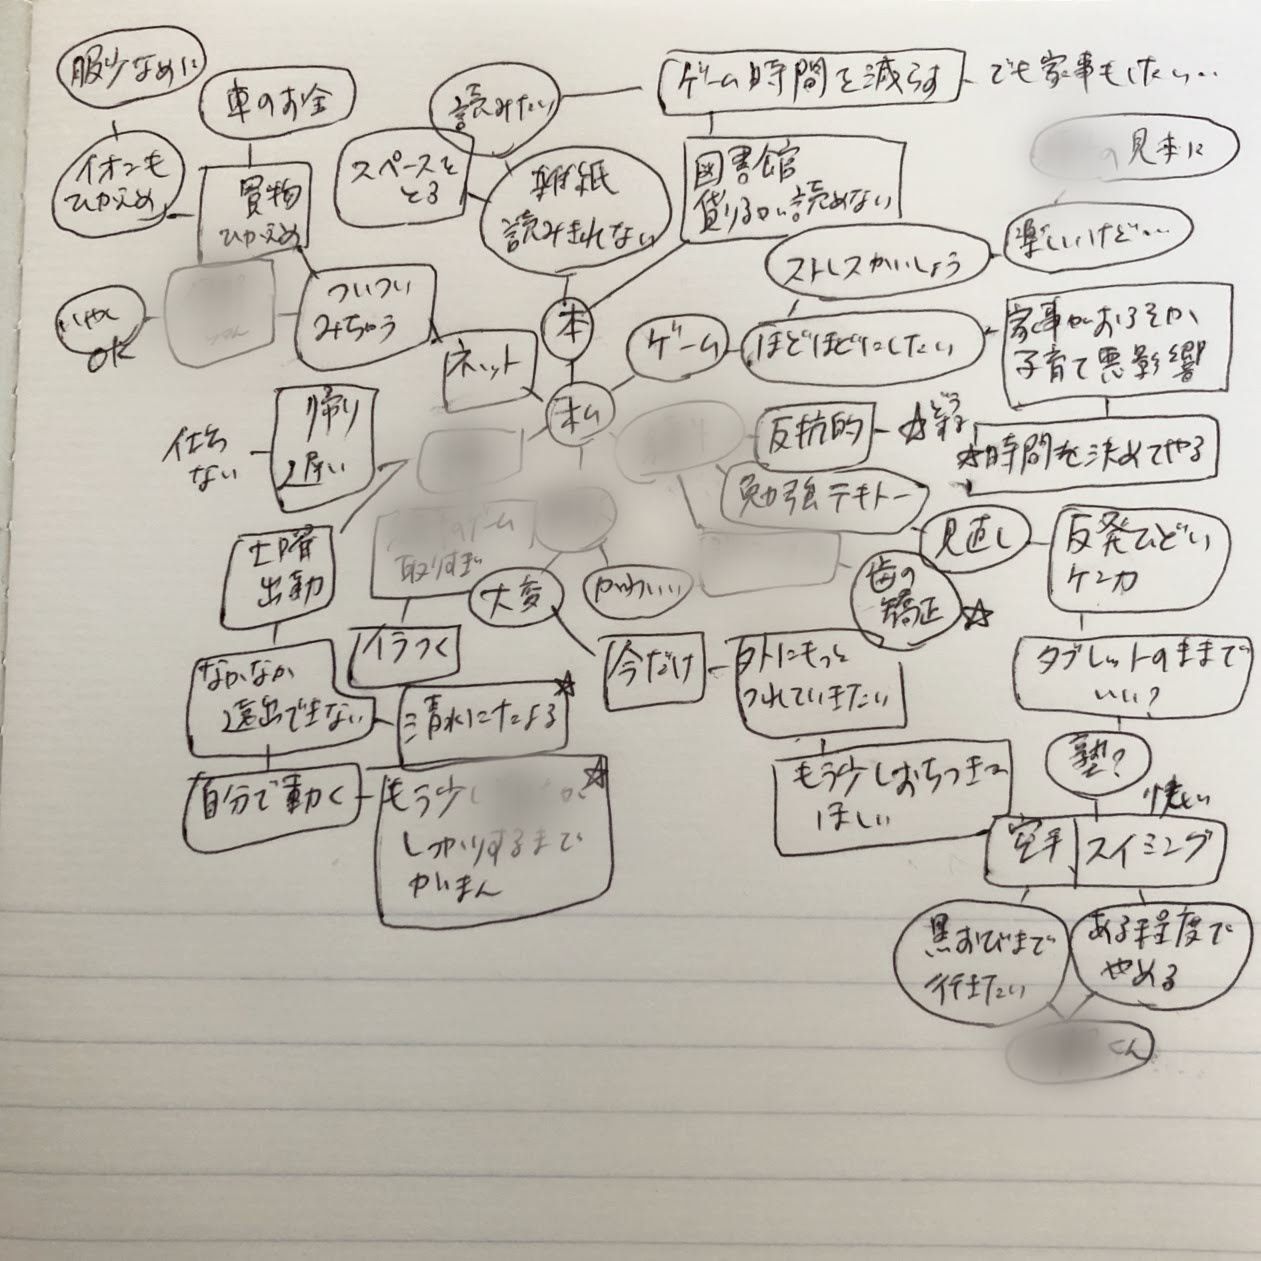 服少なめに
車のお金
読みたい
ゲーム時間を減らす
でも家事もしたい…
イオンも
ひかえめ
買物
ひかえめ
スペースを
とる
雑紙
読みきれない
図書館
借りるが読めない
の見本に
ストレスかいしょう
楽しいけど…
OK
ついつい
みちゃう
ネット
本
ゲーム
ほどほどにしたい
家事がおろそか、
子育て悪影響
仕方
ない
帰り
遅い
反抗的
☆
☆時間を決めてやる
勉強テキトー
見直し
反発ひどい
ケンカ
土曜
出勤
のゲーム
取りすぎ
大変
かわいい
歯の
矯正
☆
イラつく
今だけ
外にもっと
つれていきたい
タブレットのままで
いい?
なかなか
遠出できない
清水にたよる
☆
自分で動く
もう少し
しっかりするまで
がまん
☆
もう少しおちつきて
ほしい
塾?
空手
スイミング
黒おびまで
行きたい
ある程度で
やめる
くん